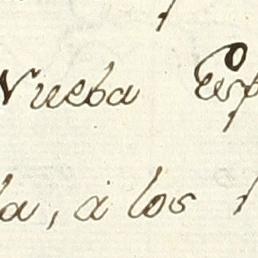 Nueba Esp
la, à los